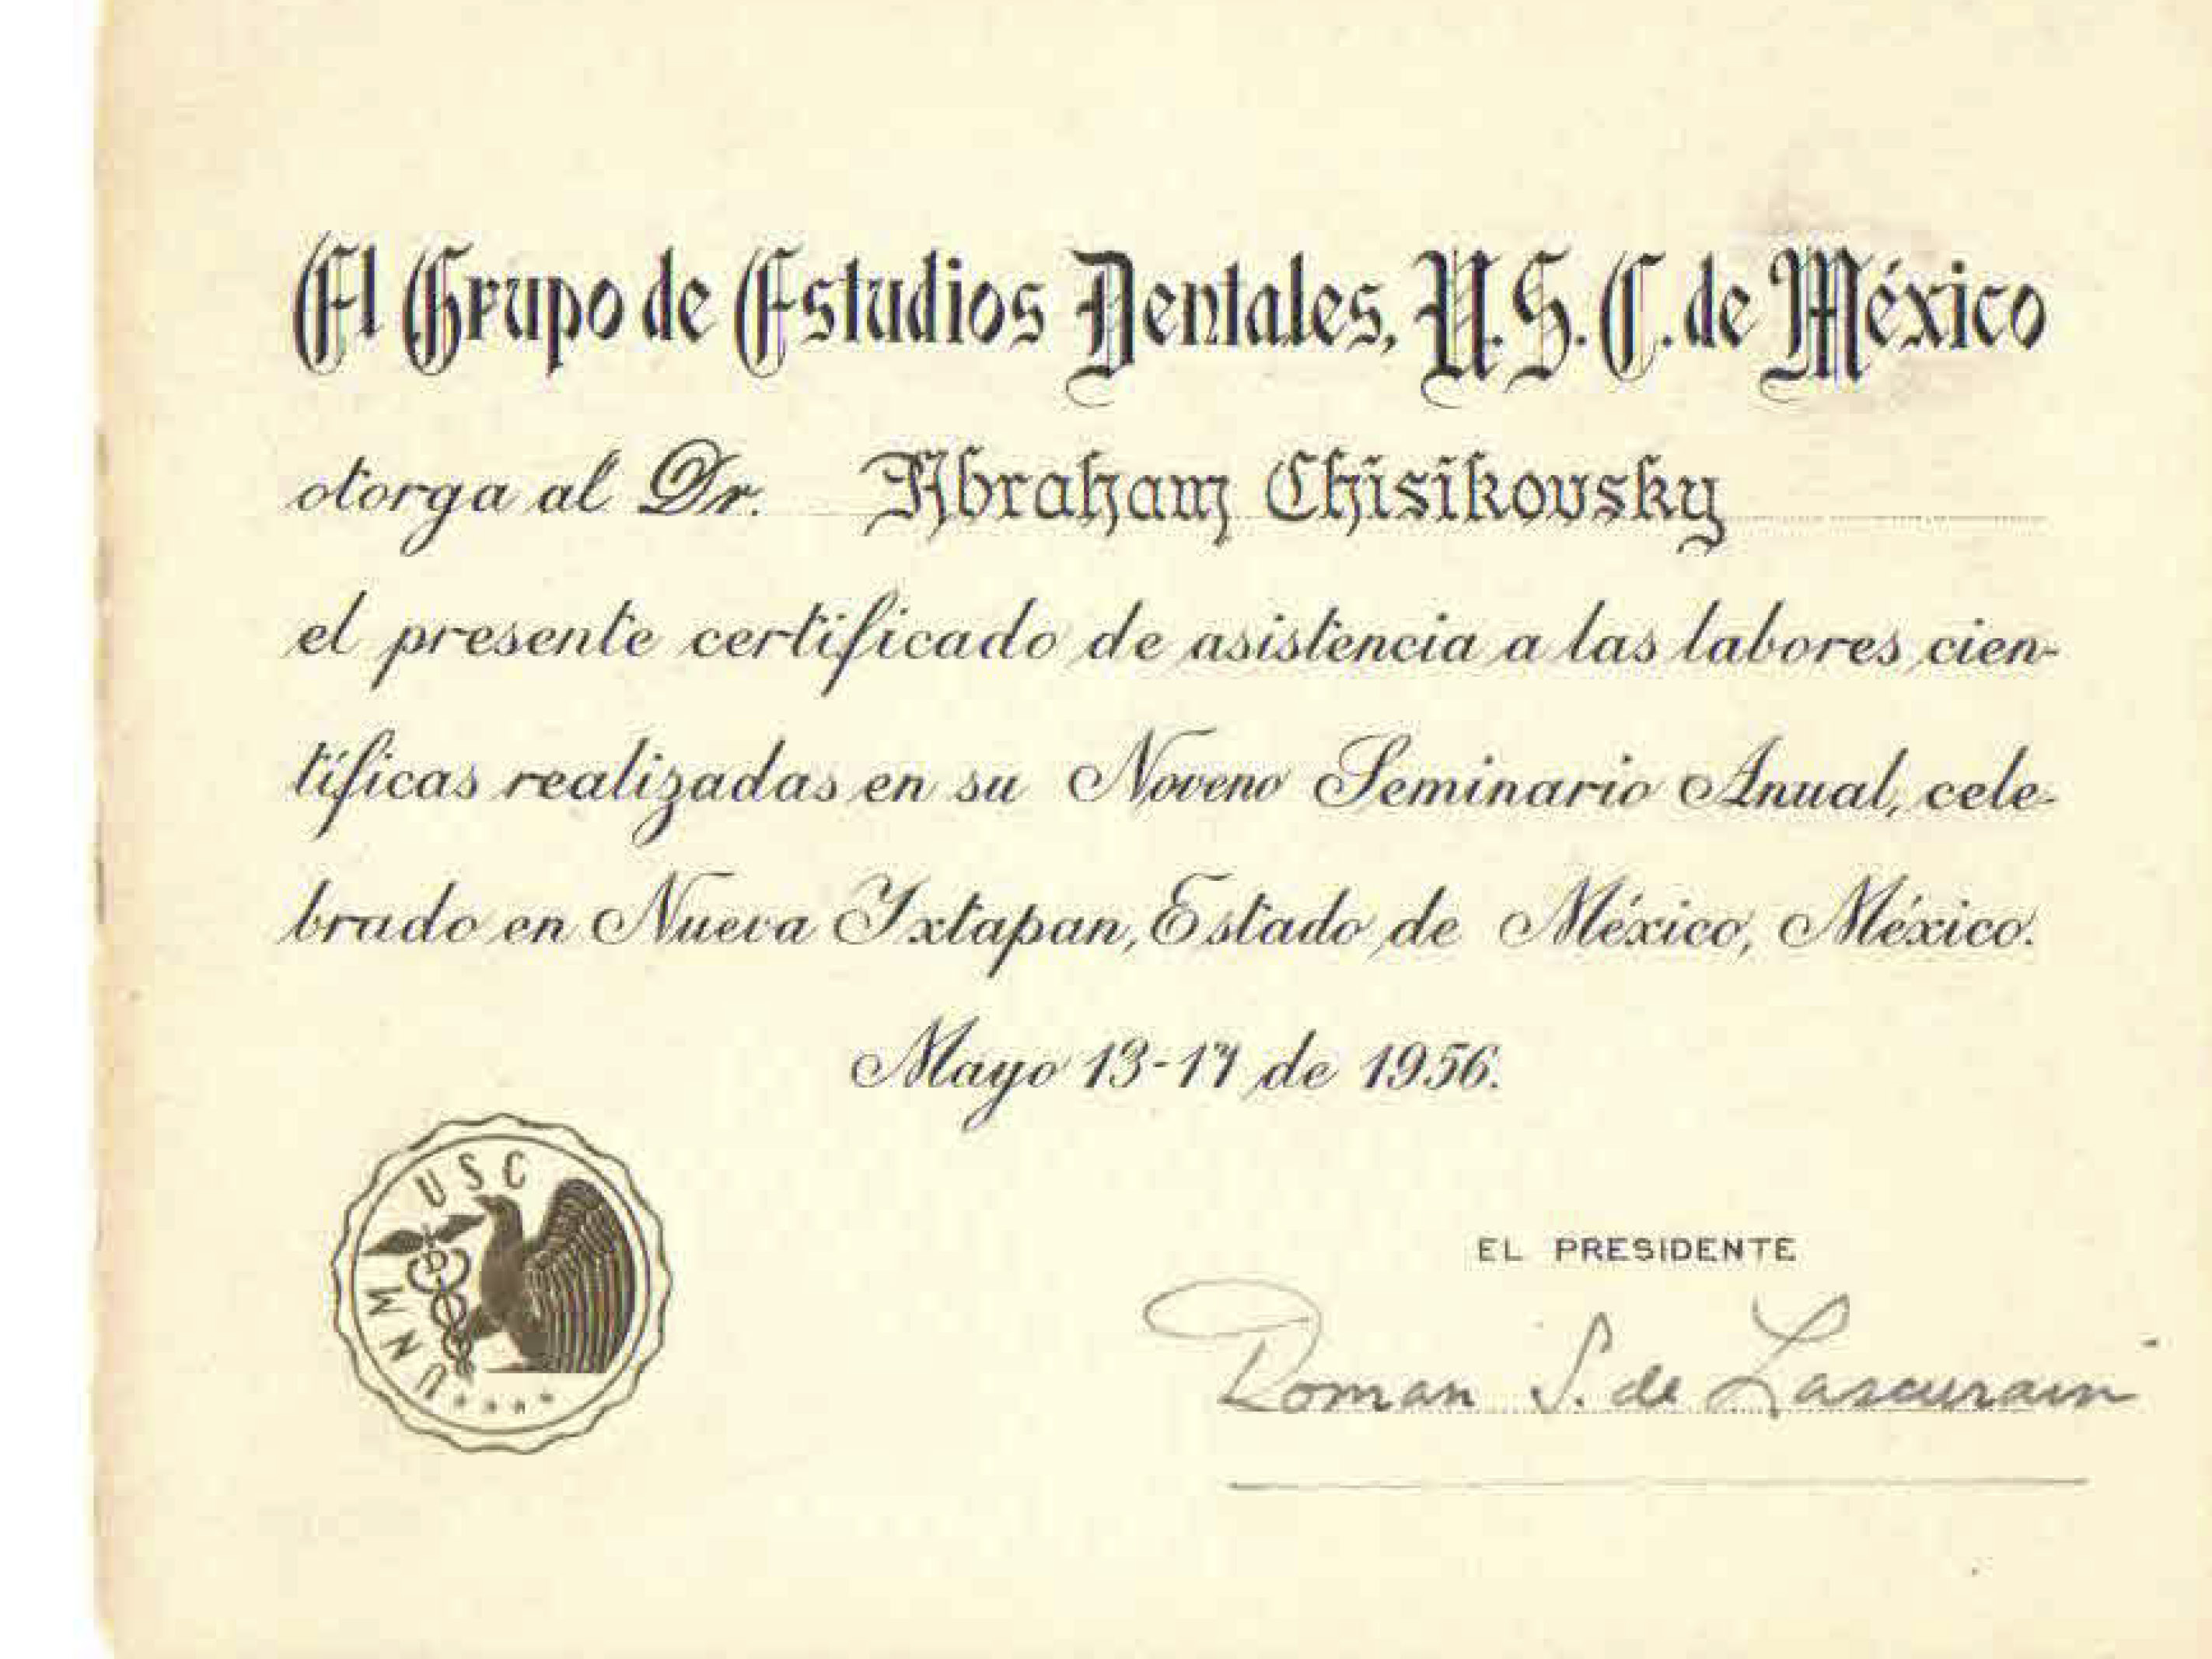 El Grupo de Estudios Dentales, U.S.C. de México
otorga al Dr. Abraham Chisikovsky
el presente certificado de asistencia a las labores cien-
tíficas realizadas en su Noveno Seminario Anual, cele-
brado en Nueva Ixtapan, Estado de México, México.
Mayo 13-17 de 1956.
USC
UNM
D
EL PRESIDENTE
Roman S. de Lascurain